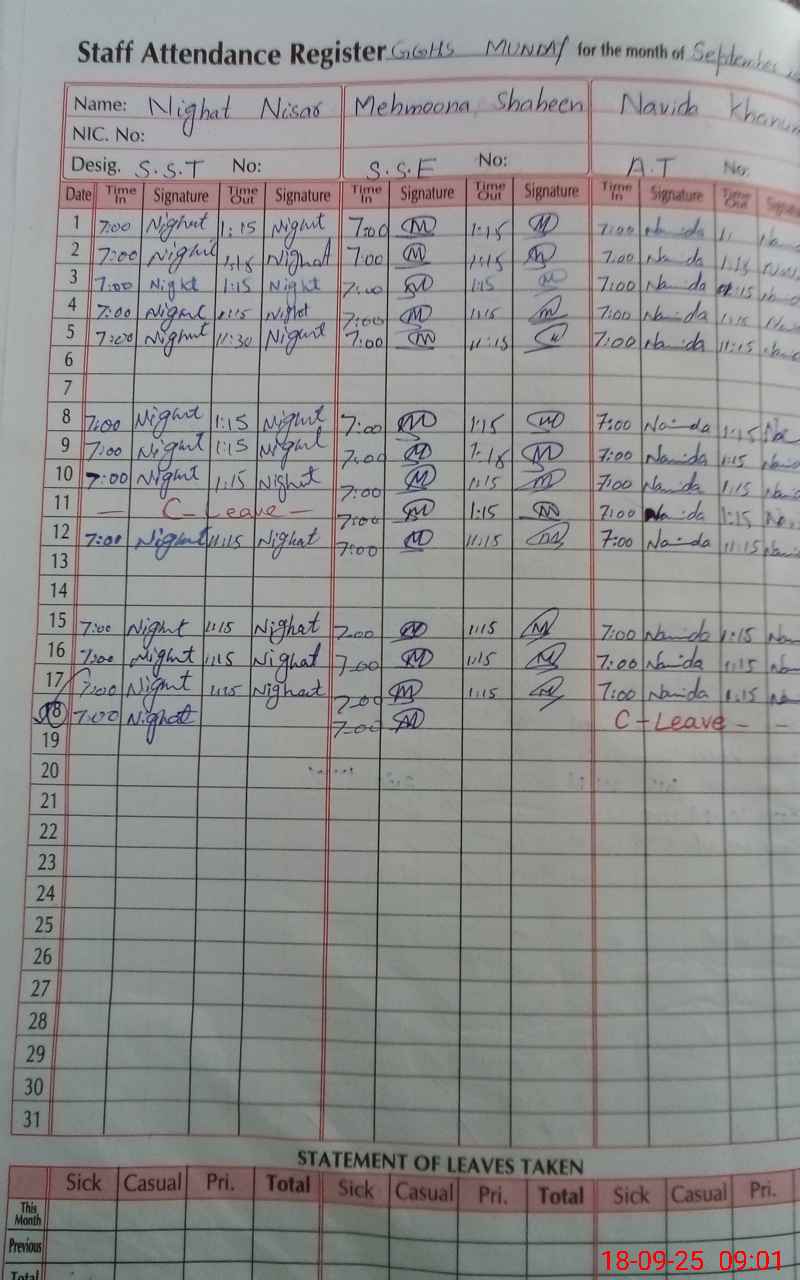 Staff Attendance Register GGHS MUNDAY for the month of September
Name: Nighat Nisar Mehmoona Shaheen Navida Khanum
NIC. No:
Desig. S.S.T No: S.S.E No: A.T No:
Date Time In Signature Time Out Signature Time In Signature Time Out Signature Time In Signature Time Out Signature
1 7:00 Nighat 1:15 Nighat 7:00 M 1:15 M 7:00 Navida
2 7:00 Nighat 1:15 Nighat 7:00 M 1:15 M 7:00 Navida 1:15
3 7:00 Nighat 1:15 Nighat 7:00 M 1:15 M 7:00 Navida 1:15
4 7:00 Nighat 1:15 Nighat 7:00 M 1:15 M 7:00 Navida 1:15
5 7:00 Nighat 11:30 Nighat 7:00 M 11:15 M 7:00 Navida 11:15
6
7
8 7:00 Nighat 1:15 Nighat 7:00 M 1:15 M 7:00 Navida 1:15
9 7:00 Nighat 1:15 Nighat 7:00 M M 7:00 Navida 1:15
10 7:00 Nighat 1:15 Nighat 7:00 M 1:15 M 7:00 Navida 1:15
11 — C-Leave — 7:00 M 1:15 M 7:00 Navida 1:15
12 7:00 Nighat 11:15 Nighat 7:00 M 11:15 M 7:00 Navida 11:15
13
14
15 7:00 Nighat 1:15 Nighat 7:00 M 1:15 M 7:00 Navida 1:15
16 7:00 Nighat 1:15 Nighat 7:00 M 1:15 M 7:00 Navida 1:15
17 7:00 Nighat 1:15 Nighat 7:00 M 1:15 M 7:00 Navida 1:15
18 7:00 Nighat 7:00 M C-Leave - -
19
20
21
22
23
24
25
26
27
28
29
30
31
STATEMENT OF LEAVES TAKEN
Sick Casual Pri. Total Sick Casual Pri. Total Sick Casual Pri.
This Month
Previous
Total
18-09-25 09:01